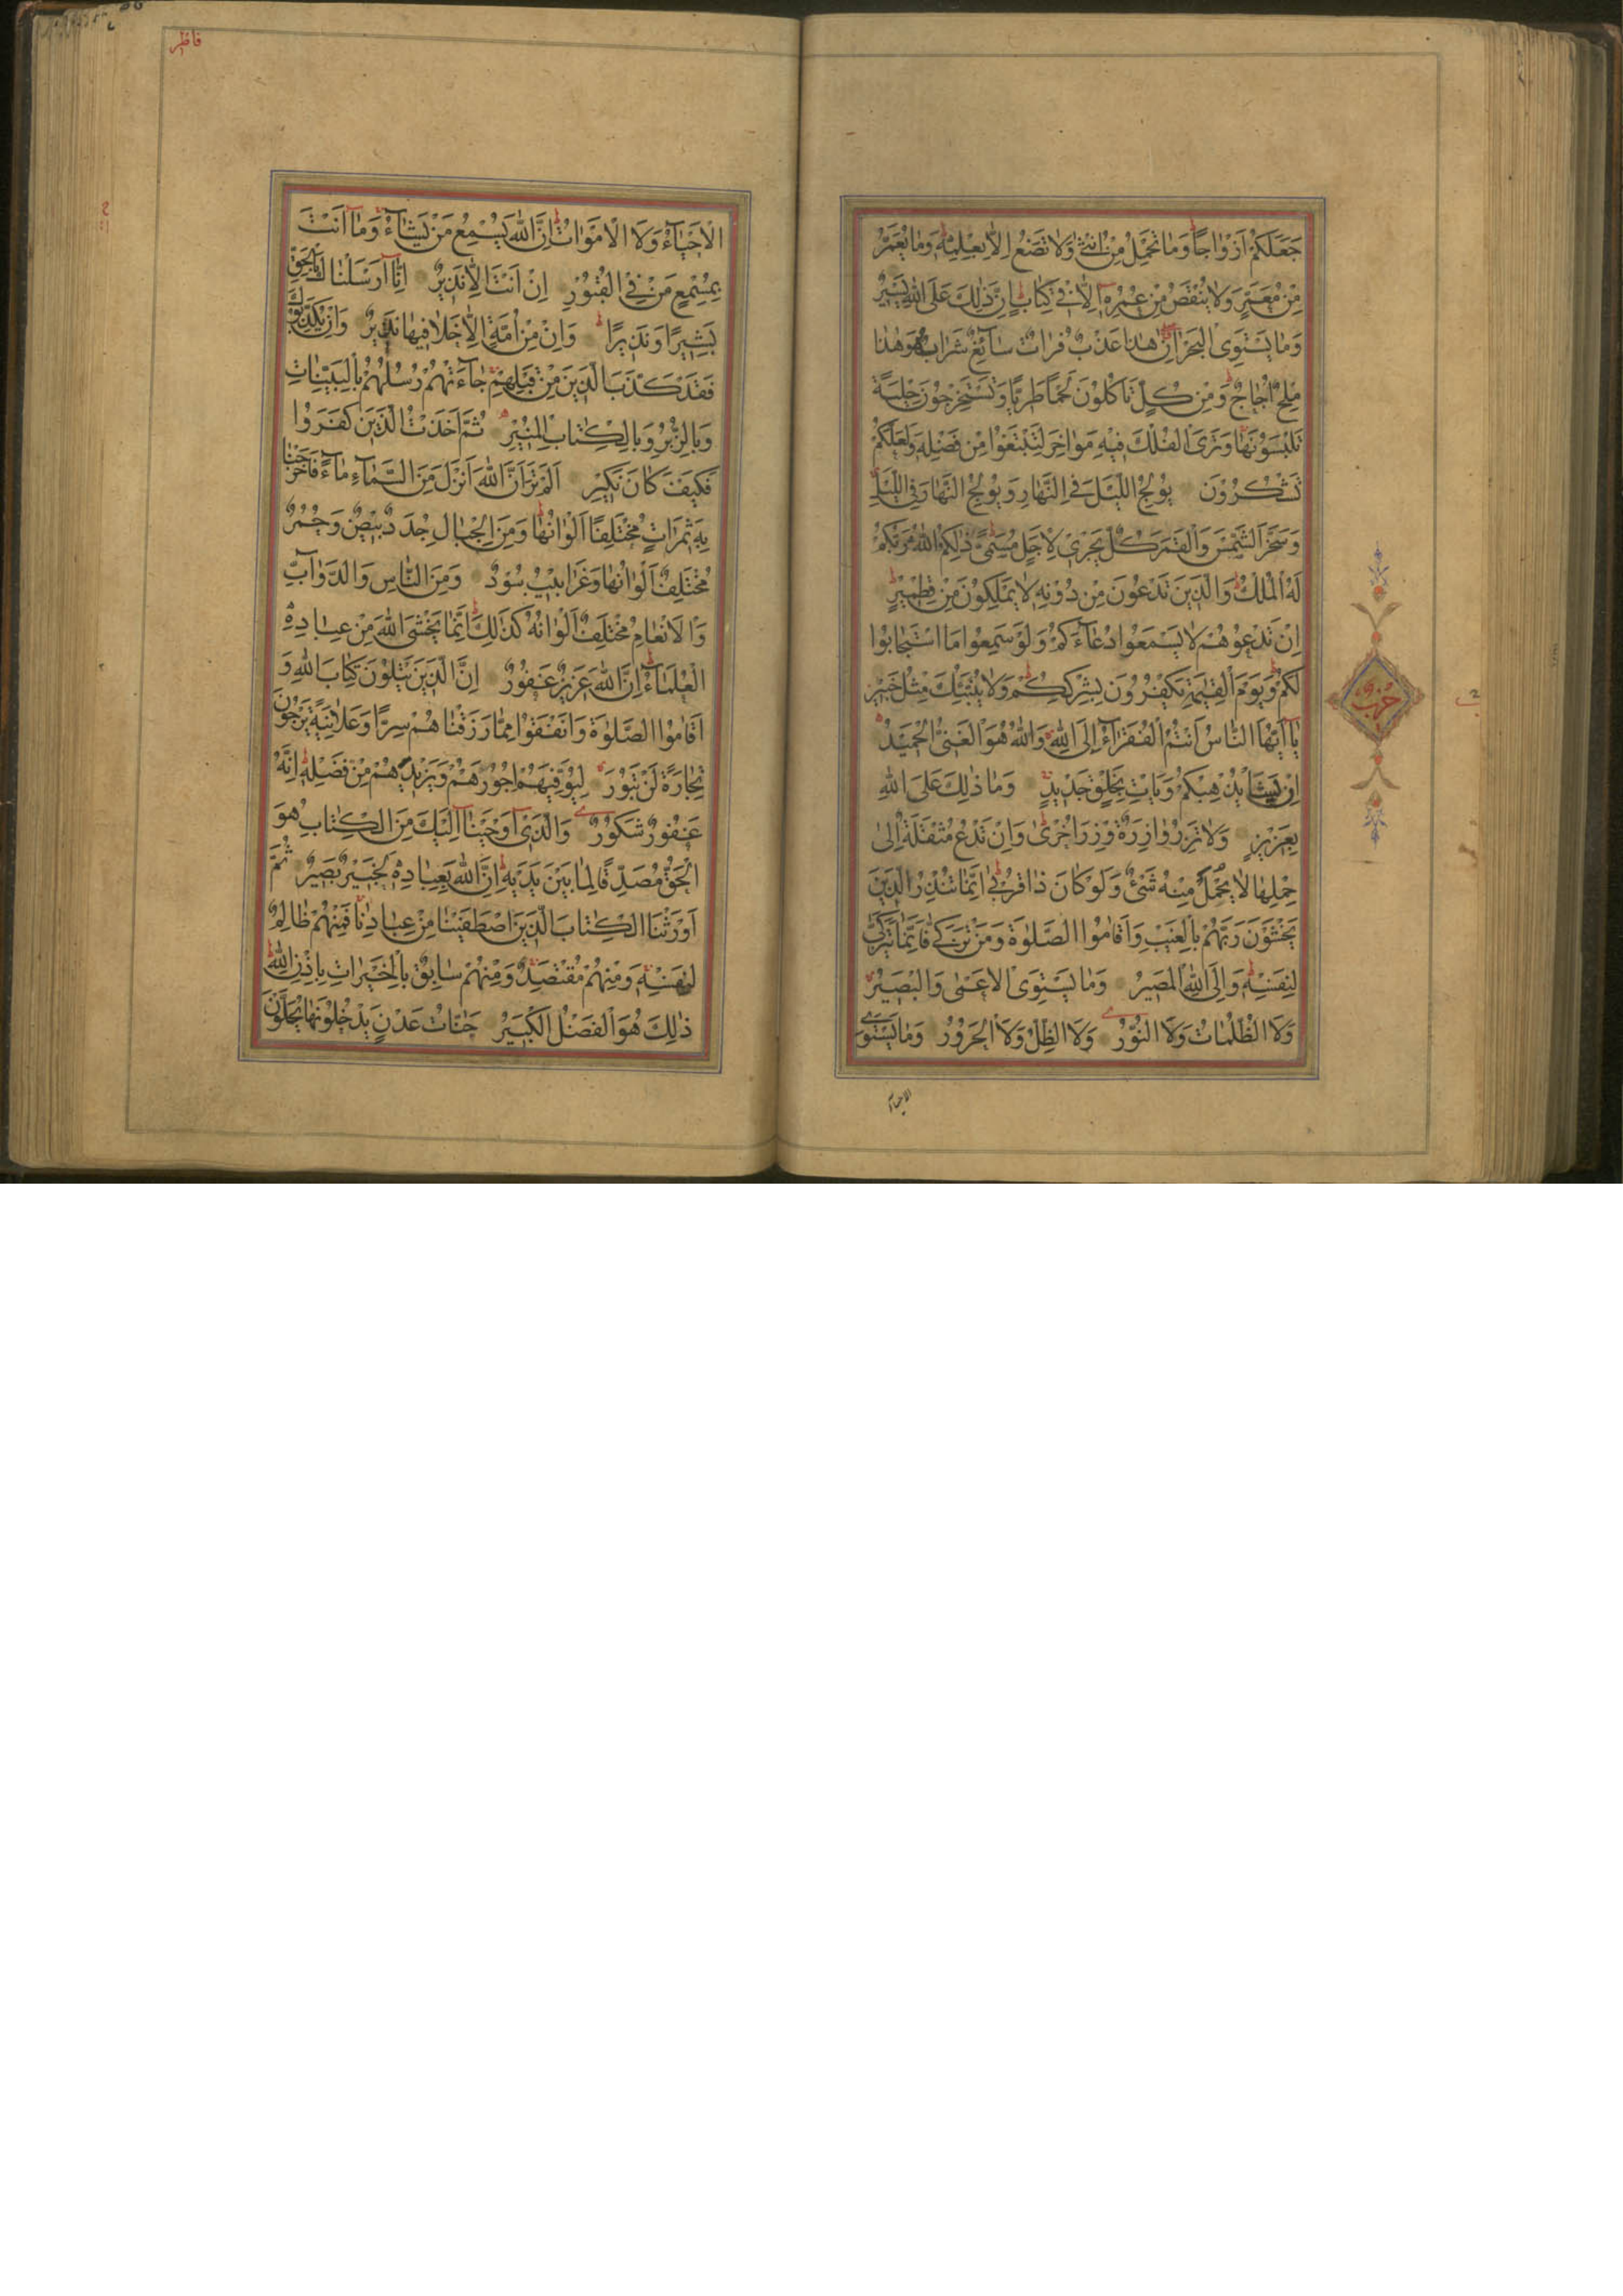 جَعَلَكُمْ اَزْوَاجًا وَمَا تَحْمِلُ مِنْ اُنْثٰى وَلَا تَضَعُ اِلَّا بِعِلْمِهِ وَمَا يُعَمَّرُ
مِنْ مُعَمَّرٍ وَلَا يُنْقَصُ مِنْ عُمُرِهِ اِلَّا فِي كِتَابٍ اِنَّ ذٰلِكَ عَلَى اللّٰهِ يَسِيرٌ
وَمَا يَسْتَوِى الْبَحْرَانِ هٰذَا عَذْبٌ فُرَاتٌ سَآئِغٌ شَرَابُهُ وَهٰذَا
مِلْحٌ اُجَاجٌ وَمِنْ كُلٍّ تَاْكُلُونَ لَحْمًا طَرِيًّا وَتَسْتَخْرِجُونَ حِلْيَةً
تَلْبَسُونَهَا وَتَرَى الْفُلْكَ فِيهِ مَوَاخِرَ لِتَبْتَغُوا مِنْ فَضْلِهِ وَلَعَلَّكُمْ
تَشْكُرُونَ يُولِجُ اللَّيْلَ فِي النَّهَارِ وَيُولِجُ النَّهَارَ فِي اللَّيْلِ
وَسَخَّرَ الشَّمْسَ وَالْقَمَرَ كُلٌّ يَجْرِي لِاَجَلٍ مُسَمًّى ذٰلِكُمُ اللّٰهُ رَبُّكُمْ
لَهُ الْمُلْكُ وَالَّذِينَ تَدْعُونَ مِنْ دُونِهِ لَا يَمْلِكُونَ مِنْ قِطْمِيرٍ
اِنْ تَدْعُوهُمْ لَا يَسْمَعُوا دُعَآءَكُمْ وَلَوْ سَمِعُوا مَا اسْتَجَابُوا
لَكُمْ وَيَوْمَ الْقِيٰمَةِ يَكْفُرُونَ بِشِرْكِكُمْ وَلَا يُنَبِّئُكَ مِثْلُ خَبِيرٍ
يَا اَيُّهَا النَّاسُ اَنْتُمُ الْفُقَرَآءُ اِلَى اللّٰهِ وَاللّٰهُ هُوَ الْغَنِىُّ الْحَمِيدُ
اِنْ يَشَأْ يُذْهِبْكُمْ وَيَاْتِ بِخَلْقٍ جَدِيدٍ وَمَا ذٰلِكَ عَلَى اللّٰهِ
بِعَزِيزٍ وَلَا تَزِرُ وَازِرَةٌ وِزْرَ اُخْرٰى وَاِنْ تَدْعُ مُثْقَلَةٌ اِلٰى
حِمْلِهَا لَا يُحْمَلْ مِنْهُ شَىْءٌ وَلَوْ كَانَ ذَا قُرْبٰى اِنَّمَا تُنْذِرُ الَّذِينَ
يَخْشَوْنَ رَبَّهُمْ بِالْغَيْبِ وَاَقَامُوا الصَّلٰوةَ وَمَنْ تَزَكّٰى فَاِنَّمَا يَتَزَكّٰى
لِنَفْسِهِ وَاِلَى اللّٰهِ الْمَصِيرُ وَمَا يَسْتَوِى الْاَعْمٰى وَالْبَصِيرُ
وَلَا الظُّلُمَاتُ وَلَا النُّورُ وَلَا الظِّلُّ وَلَا الْحَرُورُ وَمَا يَسْتَوِى
الاحياء
حزب
فاطر
الْاَحْيَآءُ وَلَا الْاَمْوَاتُ اِنَّ اللّٰهَ يُسْمِعُ مَنْ يَشَآءُ وَمَا اَنْتَ
بِمُسْمِعٍ مَنْ فِي الْقُبُورِ اِنْ اَنْتَ اِلَّا نَذِيرٌ اِنَّا اَرْسَلْنَاكَ بِالْحَقِّ
بَشِيرًا وَنَذِيرًا وَاِنْ مِنْ اُمَّةٍ اِلَّا خَلَا فِيهَا نَذِيرٌ وَاِنْ يُكَذِّبُوكَ
فَقَدْ كَذَّبَ الَّذِينَ مِنْ قَبْلِهِمْ جَآءَتْهُمْ رُسُلُهُمْ بِالْبَيِّنَاتِ
وَبِالزُّبُرِ وَبِالْكِتَابِ الْمُنِيرِ ثُمَّ اَخَذْتُ الَّذِينَ كَفَرُوا
فَكَيْفَ كَانَ نَكِيرِ اَلَمْ تَرَ اَنَّ اللّٰهَ اَنْزَلَ مِنَ السَّمَآءِ مَآءً فَاَخْرَجْنَا
بِهِ ثَمَرَاتٍ مُخْتَلِفًا اَلْوَانُهَا وَمِنَ الْجِبَالِ جُدَدٌ بِيضٌ وَحُمْرٌ
مُخْتَلِفٌ اَلْوَانُهَا وَغَرَابِيبُ سُودٌ وَمِنَ النَّاسِ وَالدَّوَآبِّ
وَالْاَنْعَامِ مُخْتَلِفٌ اَلْوَانُهُ كَذٰلِكَ اِنَّمَا يَخْشَى اللّٰهَ مِنْ عِبَادِهِ
الْعُلَمَآءُ اِنَّ اللّٰهَ عَزِيزٌ غَفُورٌ اِنَّ الَّذِينَ يَتْلُونَ كِتَابَ اللّٰهِ وَ
اَقَامُوا الصَّلٰوةَ وَاَنْفَقُوا مِمَّا رَزَقْنَاهُمْ سِرًّا وَعَلَانِيَةً يَرْجُونَ
تِجَارَةً لَنْ تَبُورَ لِيُوَفِّيَهُمْ اُجُورَهُمْ وَيَزِيدَهُمْ مِنْ فَضْلِهِ اِنَّهُ
غَفُورٌ شَكُورٌ وَالَّذِى اَوْحَيْنَا اِلَيْكَ مِنَ الْكِتَابِ هُوَ
الْحَقُّ مُصَدِّقًا لِمَا بَيْنَ يَدَيْهِ اِنَّ اللّٰهَ بِعِبَادِهِ لَخَبِيرٌ بَصِيرٌ ثُمَّ
اَوْرَثْنَا الْكِتَابَ الَّذِينَ اصْطَفَيْنَا مِنْ عِبَادِنَا فَمِنْهُمْ ظَالِمٌ
لِنَفْسِهِ وَمِنْهُمْ مُقْتَصِدٌ وَمِنْهُمْ سَابِقٌ بِالْخَيْرَاتِ بِاِذْنِ اللّٰهِ
ذٰلِكَ هُوَ الْفَضْلُ الْكَبِيرُ جَنَّاتُ عَدْنٍ يَدْخُلُونَهَا يُحَلَّوْنَ